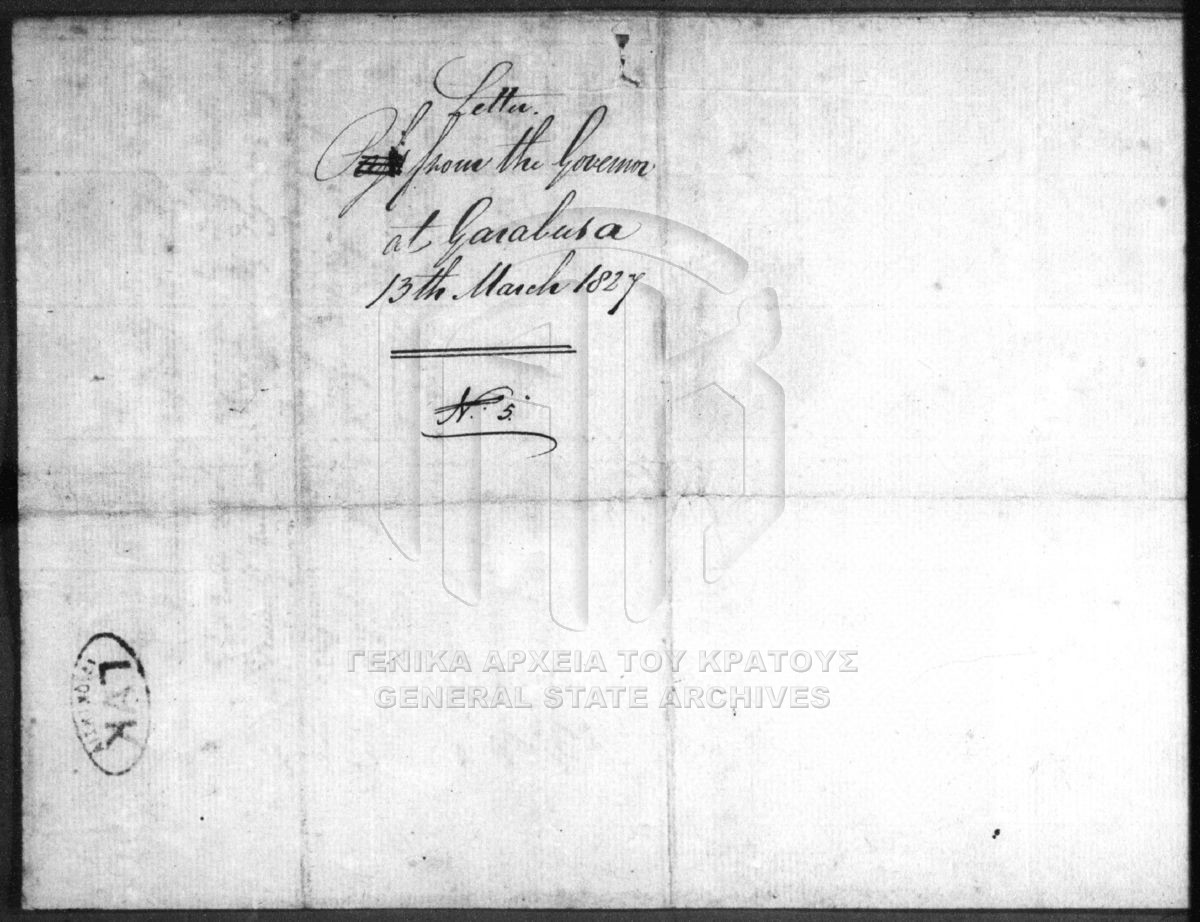 Letter.
from the Governor
at Garabusa
13th March 1827
N. 5.
ΓΕΝΙΚΑ ΑΡΧΕΙΑ ΤΟΥ ΚΡΑΤΟΥΣ
GENERAL STATE ARCHIVES